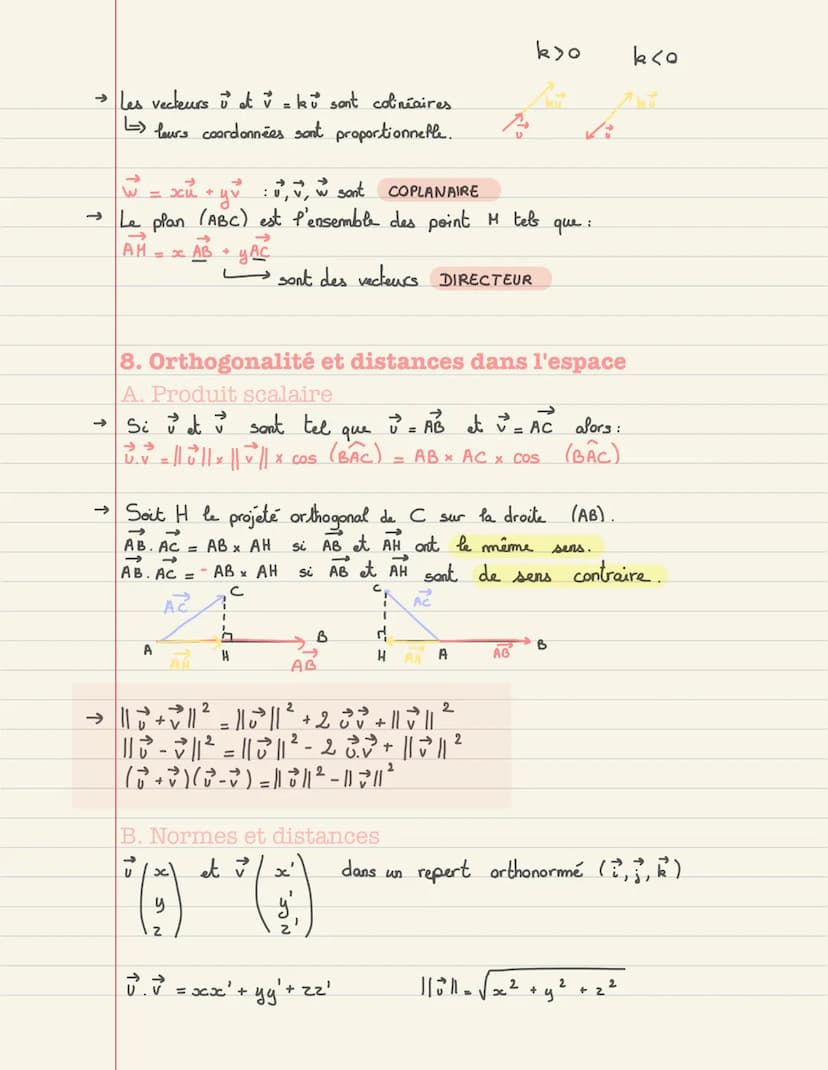 k>0 k<0
→ Les vecteurs u⃗ et v⃗ = ku⃗ sont colinéaires
↳ leurs coordonnées sont proportionnelle.
ku⃗ u⃗ ku⃗ u⃗
w⃗ = xu⃗ + yv⃗ : u⃗, v⃗, w⃗ sont COPLANAIRE
→ Le plan (ABC) est l'ensemble des point M tels que :
AM⃗ = x AB⃗ + yAC⃗
↳ sont des vecteurs DIRECTEUR
8. Orthogonalité et distances dans l'espace
A. Produit scalaire
→ Si u⃗ et v⃗ sont tel que u⃗ = AB⃗ et v⃗ = AC⃗ alors :
u⃗.v⃗ = ||u⃗|| x ||v⃗|| x cos (BAC^) = AB x AC x cos (BAC^)
→ Soit H le projeté orthogonal de C sur la droite (AB).
AB⃗. AC⃗ = AB x AH si AB⃗ et AH⃗ ont le même sens.
AB⃗. AC⃗ = - AB x AH si AB⃗ et AH⃗ sont de sens contraire.
AC⃗ C C AC⃗
A AH⃗ H AB⃗ B H AH⃗ A AB⃗ B
→ ||u⃗ + v⃗||² = ||u⃗||² + 2 u⃗v⃗ + ||v⃗||²
||u⃗ - v⃗||² = ||u⃗||² - 2 u⃗.v⃗ + ||v⃗||²
(u⃗ + v⃗)(u⃗ - v⃗) = ||u⃗||² - ||v⃗||²
B. Normes et distances
u⃗ (x y z) et v⃗ (x' y' z') dans un repert orthonormé (i⃗, j⃗, k⃗)
u⃗.v⃗ = xx' + yy' + zz' ||u⃗|| = √x² + y² + z²